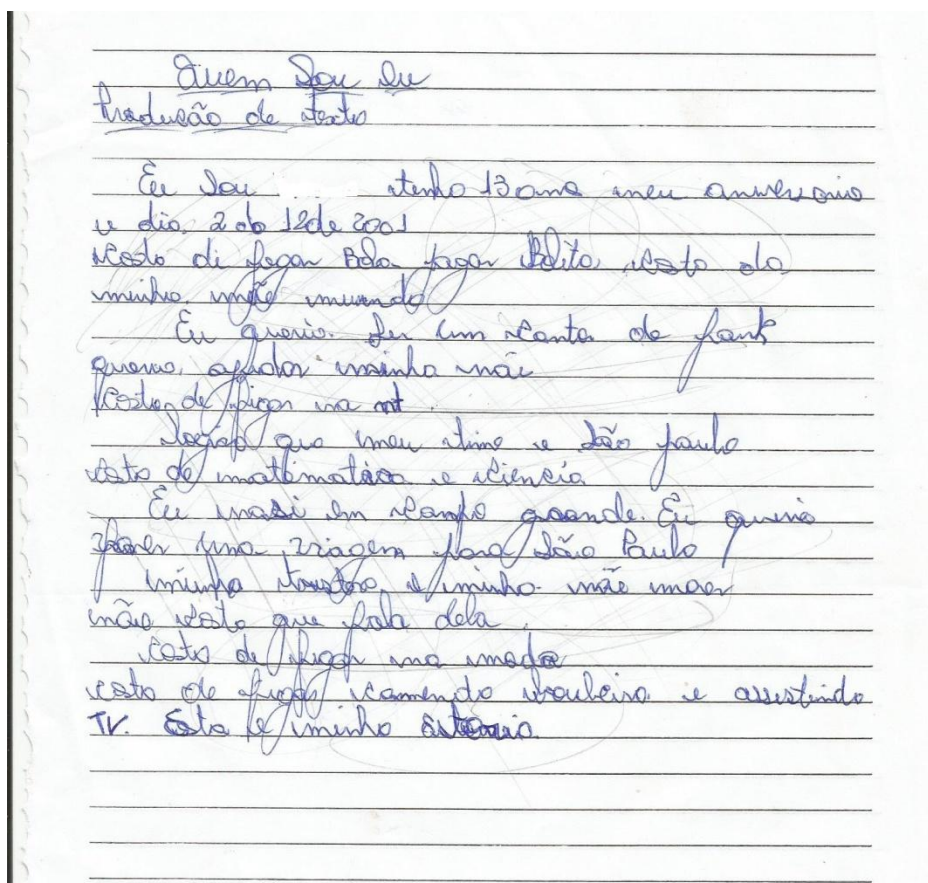 Quem Sou Eu
Produção de texto
Eu Sou tenho 13 ano meu
e dia 2 do 12 de 2001
costo di jogar Bola jogar costo da
minha mãe mundo
Eu queria ser um de funk
queria ajudar minha mãe
costo de ficar na
que meu time e São paulo
costo de matematica e ciencia
Eu masi em campo grande. Eu queria
fazer uma viagem para São Paulo
minha e minha mãe
não costo que fala dela
costo de ficar na
costo de ficar comendo e assistindo
TV. Esta e minha